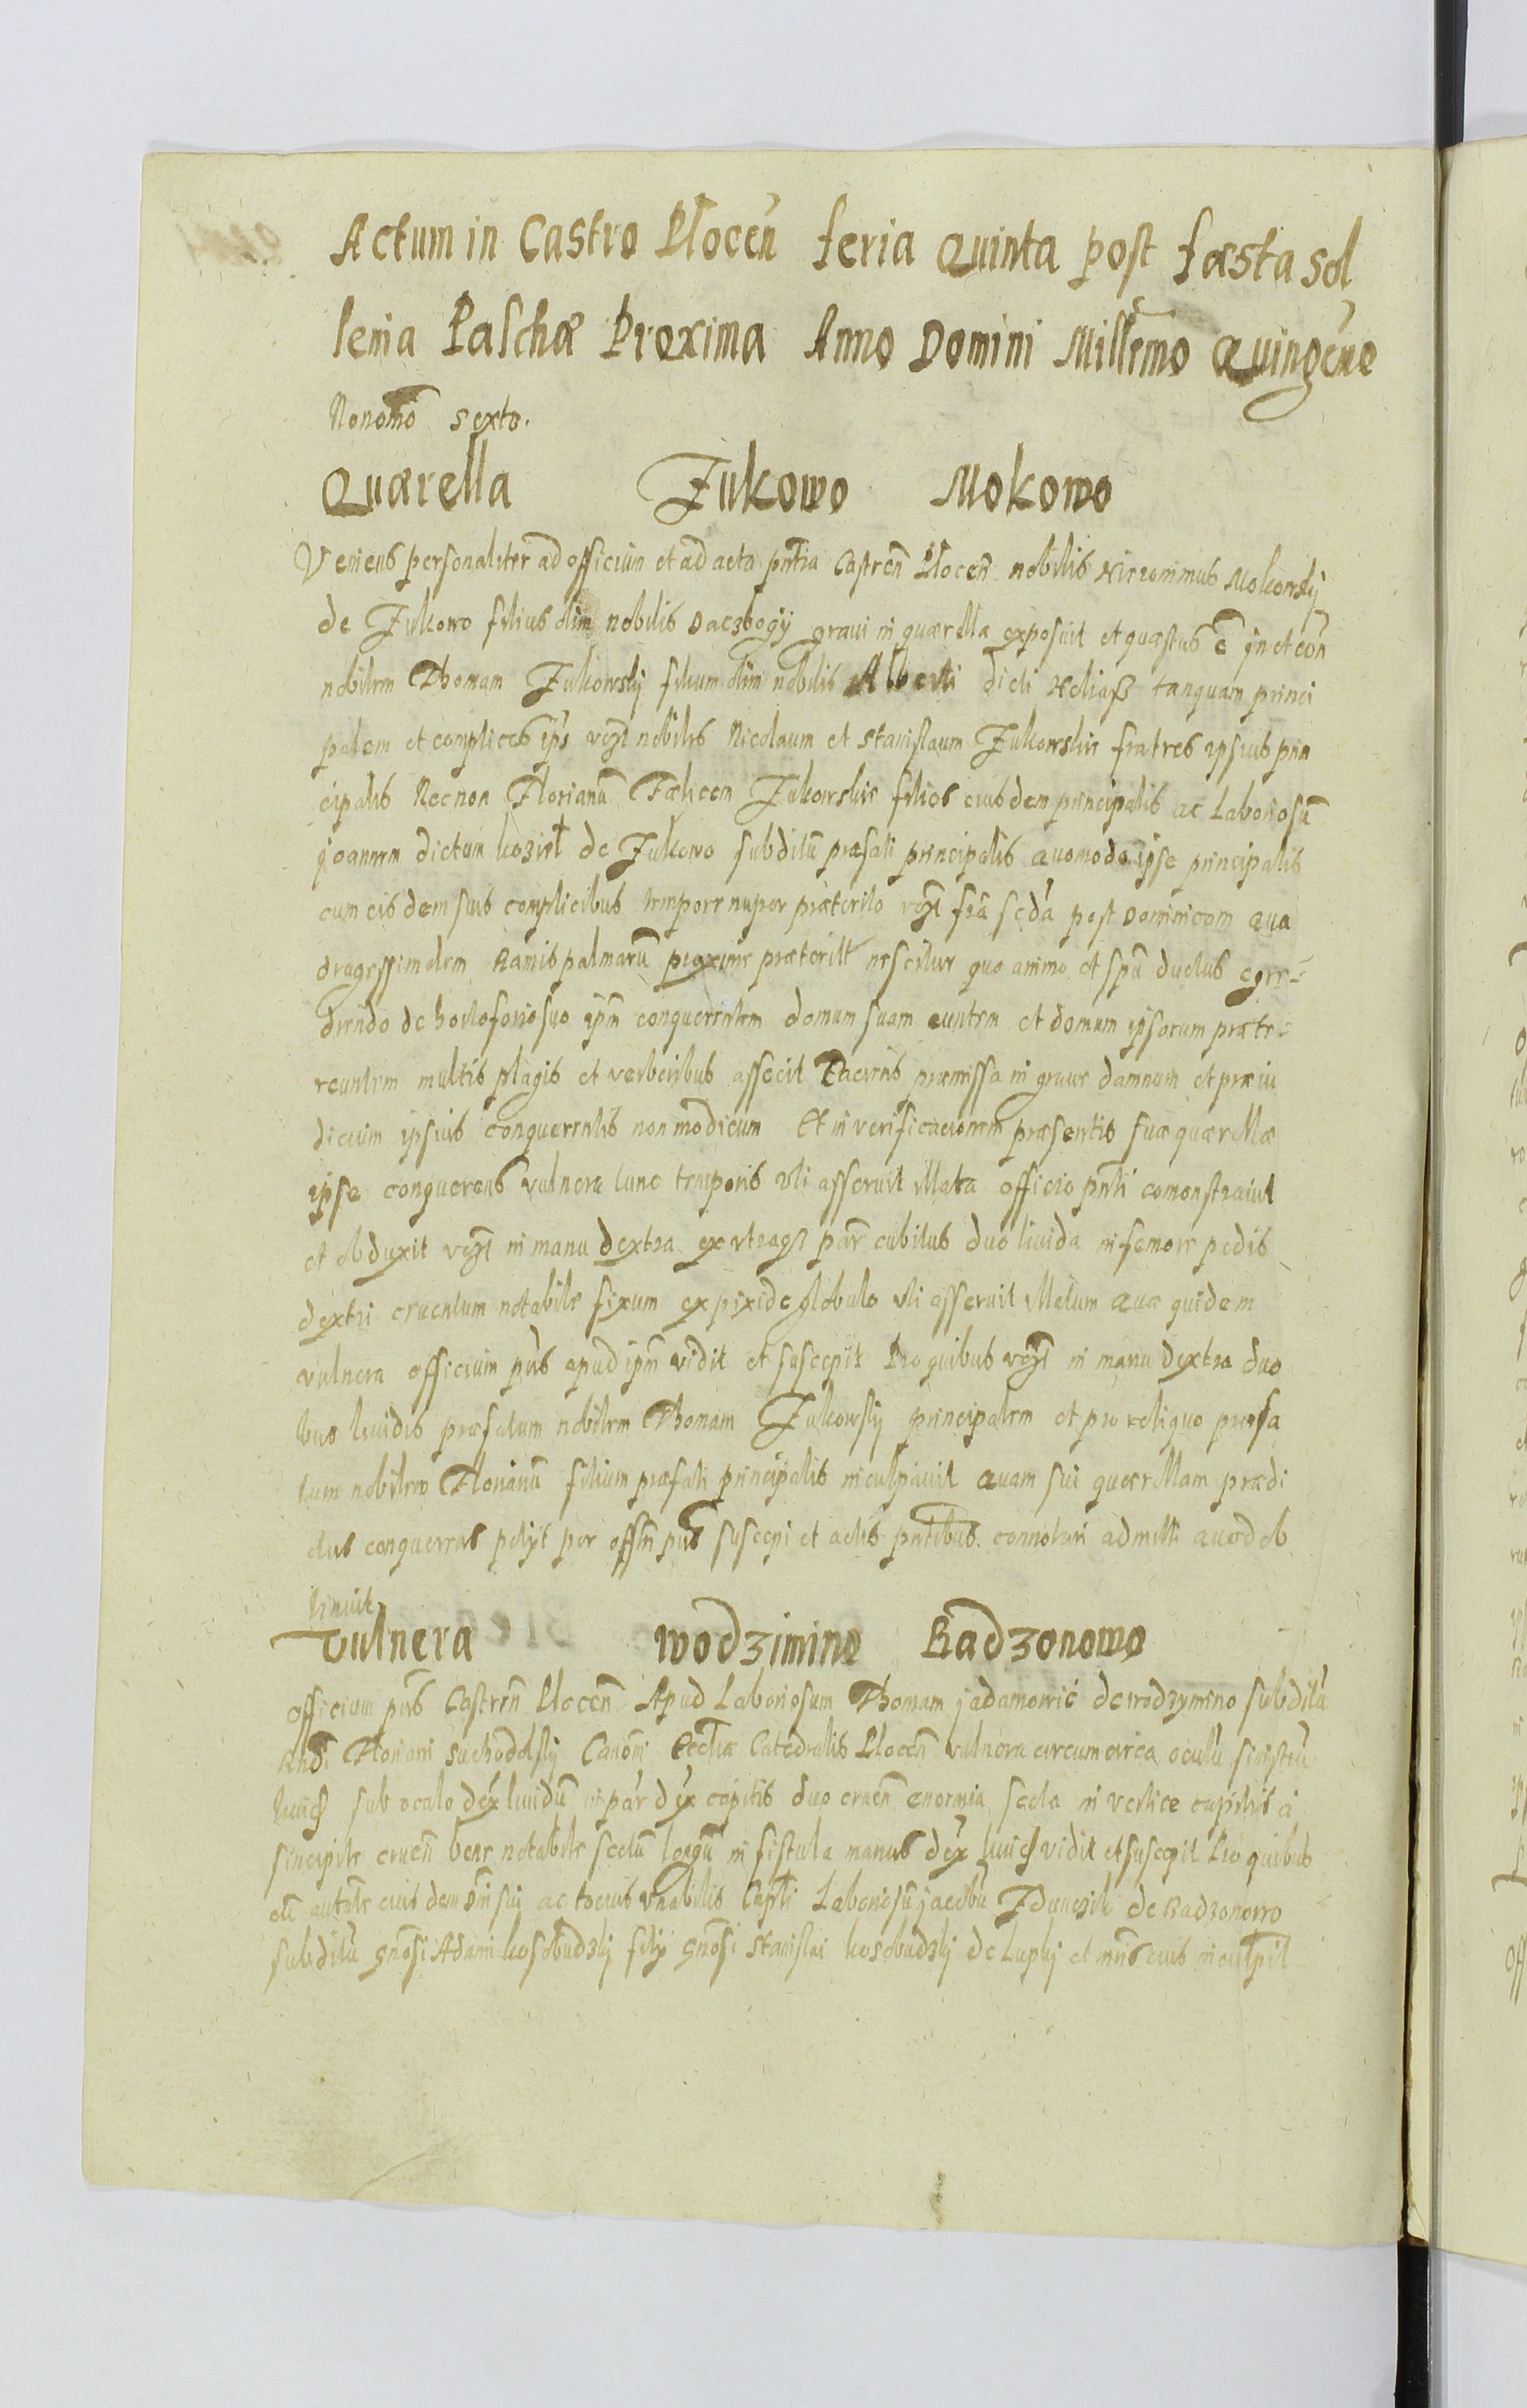 Actum in Castro Plocen̄ feria Quinta post fæsta sol
lenia Paschæ Proxima Anno Domini Millēmo Quingēne
Nonom̄o sexto.
Quærella Zukowo Mokowo
Veniens personaliter ad officium et ad acta pn̄tia Castren̄ Plocen̄ nobilis Hieronimus Mokowsky
de Zukowo filius olim nobilis Daczbogy graui in quærella exposuit et quæstus ē in et con̄
nobilem Thomam Zukowsky filium olim nobilis Alberti dicti Heliaß tanquam princi
palem et complices ip̄s vcz̄t nobiles Nicolaum et Stanislaum Zukowskie fratres ipsius prin
cipalis Necnon Florianū Fælicem Zukowskie filios eiusdem principalis ac Laboriosū
Joannem dictum kozieł de Zukowo subditū præfati principalis Quomodo ipse principalis
cum eisdem suis complicibus tempore nuper præterito vcz̄t fr̄ia sc̄da post Dominicam Qua
dragessimalem Ramispalmarū proxime præterit nescitur quo animo et spū ductus egre-
diendo de hortoforio suo ip̄m conquerentem domum suam euntem et domum ipsorum præte-
reuntem multis plagis et verberibus affecit Faciens præmissa in graue damnum et præiu
dicium ipsius conquerentis non modicum Et in verificacionem præsentis suæ quærellæ
ipse conquerens vulnera tunc temporis vti asseruit illata officio pn̄ti comonstrauit
et obduxit vcz̄t in manu dextra ex vtraqз par̄ cubitus duo liuida in femore pedis
dextri cruentum notabile fixum ex pixide globulo vti asseruit illatum Quæ quidem
vulnera officium pn̄s apud ip̄m vidit et suscepit Pro quibus vcz̄t in manu dextra duo
bus liuidis præfatum nobilem Thomam Zukowsky principalem et pro reliquo præfa
tum nobilem Florianū filium præfati principalis inculpauit Quam sui quærellam prædi
ctus conquerens petyt per offm̄ pn̄s suscepi et actis pn̄tibus connotari admitti Quod ob
tinuit
Vulnera Wodzimino Radzonowo
Officium pn̄s Castren̄ Plocen̄ Apud Laboriosum Thomam Jadamowic de Wodzymino subditū
Rnd̄i Floriani Suchodolsky Canon̄i Eccl̄iæ Catedralis Plocen̄ vulnera circumcirca oculū sinistrū
sub oculo dex̄ liuidū in par̄ dex̄ capitis duo cruen̄ enormia secta in vertice capitis a
sincipite cruen̄ bene notabile sectū longū in fistula manus dex̄ vidit et suscepit Pro quibus
eiusdem dn̄i sui ac tocius Vnabilis Capl̄i Laboriosū Jacobū de Radzonowo
subditū Gn̄osi Adami kosobudzky fily Gn̄osi Stanislai kosobudzky de Lupky et eius inculpit